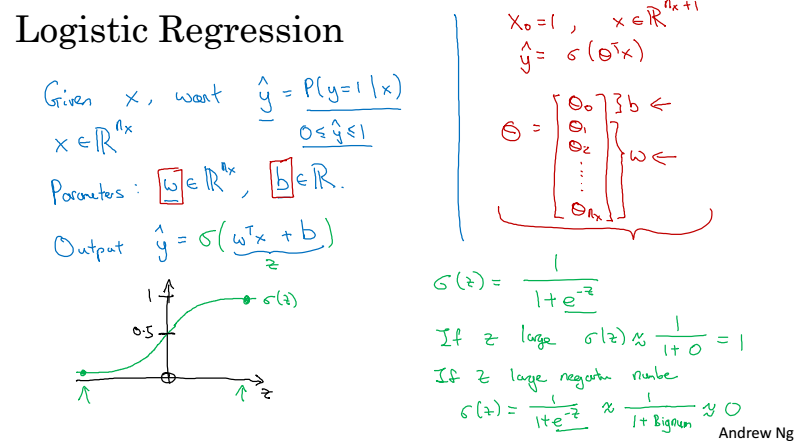 Logistic Regression
Given x, want ŷ = P(y=1|x)
x ∈ ℝ^{n_x}
0 ≤ ŷ ≤ 1
Parameters: w ∈ ℝ^{n_x}, b ∈ ℝ.
Output ŷ = σ(w^T x + b)
z
1
0.5
σ(z)
z
x_0 = 1, x ∈ ℝ^{n_x+1}
ŷ = σ(θ^T x)
θ = [θ_0 } b ←
θ_1
θ_2 } w ←
⋮
θ_{n_x}]
σ(z) = 1 / (1 + e^{-z})
If z large σ(z) ≈ 1 / (1 + 0) = 1
If z large negative number
σ(z) = 1 / (1 + e^{-z}) ≈ 1 / (1 + Bignum) ≈ 0
Andrew Ng